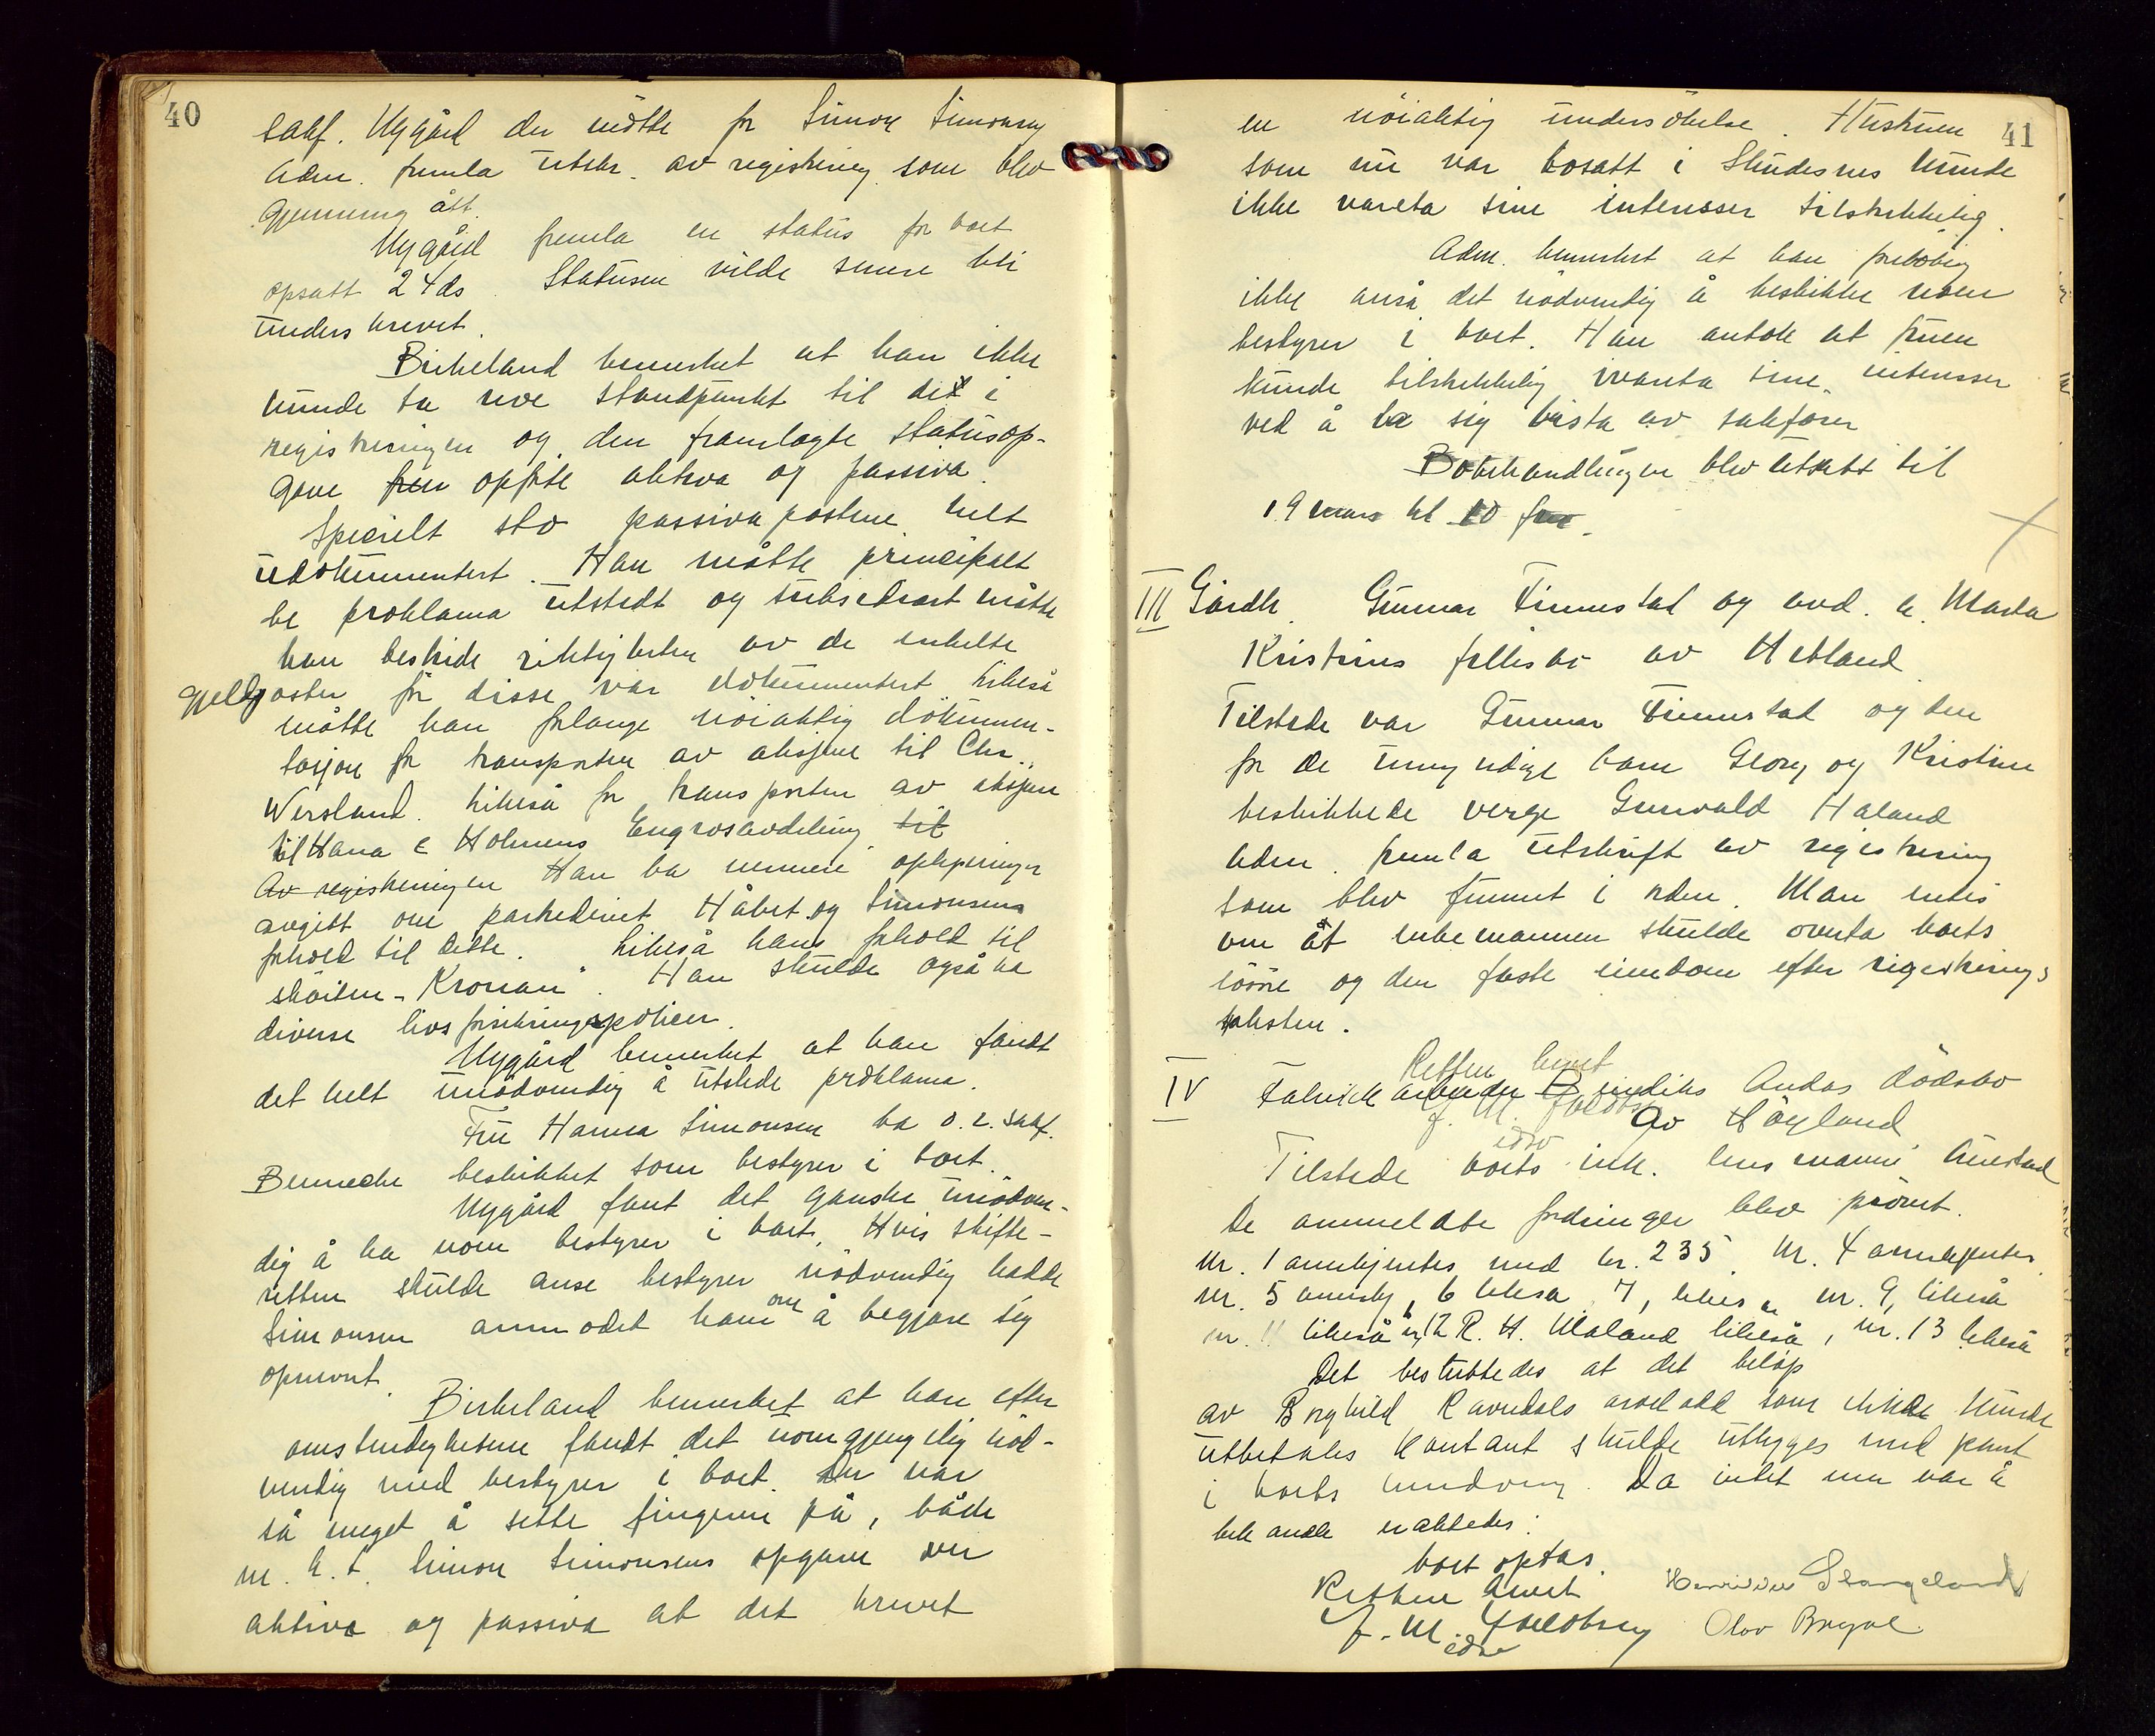 40
sakf. Nygård der møtte for Simon Simonsen
Adm. fremla utskr. av registrering som blev
gjennemgått.
Nygård fremla en status for boet
opsatt 24ds. Statusen vilde senere bli
underskrevet.
Birkeland bemerket at han ikke
kunde ta noe standpunkt til det i
registreringen og den framlagte statusop-
gave opførte aktiva og passiva.
Specielt sto passivapostene helt
udokumentert. Han måtte principalt
be proklama utstedt og subsidiært måtte
han bestride riktigheten av de enkelte
gjeldsposter før disse var dokumentert. Likeså
måtte han forlange nöiaktig dokumen-
tasjon for transporten av aksjene til Chr.
Wersland. Likeså for transporten av aksjene
til Hana & Holmens Engrosavdeling til
Av registreringen Han ba nermere oplysninger
avgitt om partrederiet Håbet og Simonsens
forhold til dette. Likeså hans forhold til
sköiten "Kronan". Han skulde også ha
diverse livsforsikringspoliser.
Nygård bemerket at han fandt
det helt unødvendig å utstede proklama.
Fru Hanna Simonsen ba o.r.sakf.
Benneche beskikket som bestyrer i boet.
Nygård fant det ganske unødven-
dig å ha noen bestyrer i boet. Hvis skifte-
retten skulde anse bestyrer nödvendig hadde
Simonsen anmodet ham om å begjære sig
opnevnt.
Birkeland bemerket at han efter
omstendighetene fandt det uomgjengelig nöd-
vendig med bestyrer i boet. Der var
så meget å sette fingeren på, både
m.h.t. Simon Simonsens opgave over
aktiva og passiva at det krevet
41
en nöiaktig undersökelse. Hustruen
som nu var bosatt i Skudesnes kunde
ikke vareta sine interesser tilstrekkelig.
Adm. bemerket at han foreløbig
ikke anså det nödvendig å beskikke noen
bestyrer i boet. Han antok at fruen
kunde tilstrekkelig ivareta sine interesser
ved å la sig bista av sakförer
Bobehandlingen blev utsatt til
19 mars kl 10 frm.
III Gårdbr. Gunnar Finnestad og avd. h. Marta
Kristines fellesbo av Hetland.
Tilstede var Gunnar Finnestad og den
for de umyndige barn Georg og Kristine
beskikkede verge Gunvald Haland
Adm. fremla utskrift av registrering
som blev funnet i orden. Man enedes
om at enkemannen skulde overta boets
lösöre og den faste eiendom efter registrerings
taksten.
Retten hevet
IV Fabrikkarbeider Andas dödsbo
J. M. Jacobsen av Höyland
edsv
Tilstede boets ink. lensmann Aurstad
De anmeldte fordringer blev prövet.
Nr. 1 annerkjentes med kr. 235. Nr. 4 annerkjentes
nr. 5 annerkj, 6 likesa 7, likes a nr. 9, likeså
nr. 11 likeså nr 12 R. H. Ulaland likeså, nr. 13 likeså
Det besluttedes at det belöp
av Borghild Ravndals arvelodd som ikke kunde
utbetales kontant skulde utlegges med pant
i boets eiendom. Da intet mer var å
behandle eraktedes:
boet optas.
Retten hevet
J. M. Jacobsen
edsv
Stangeland
Olav Bryne